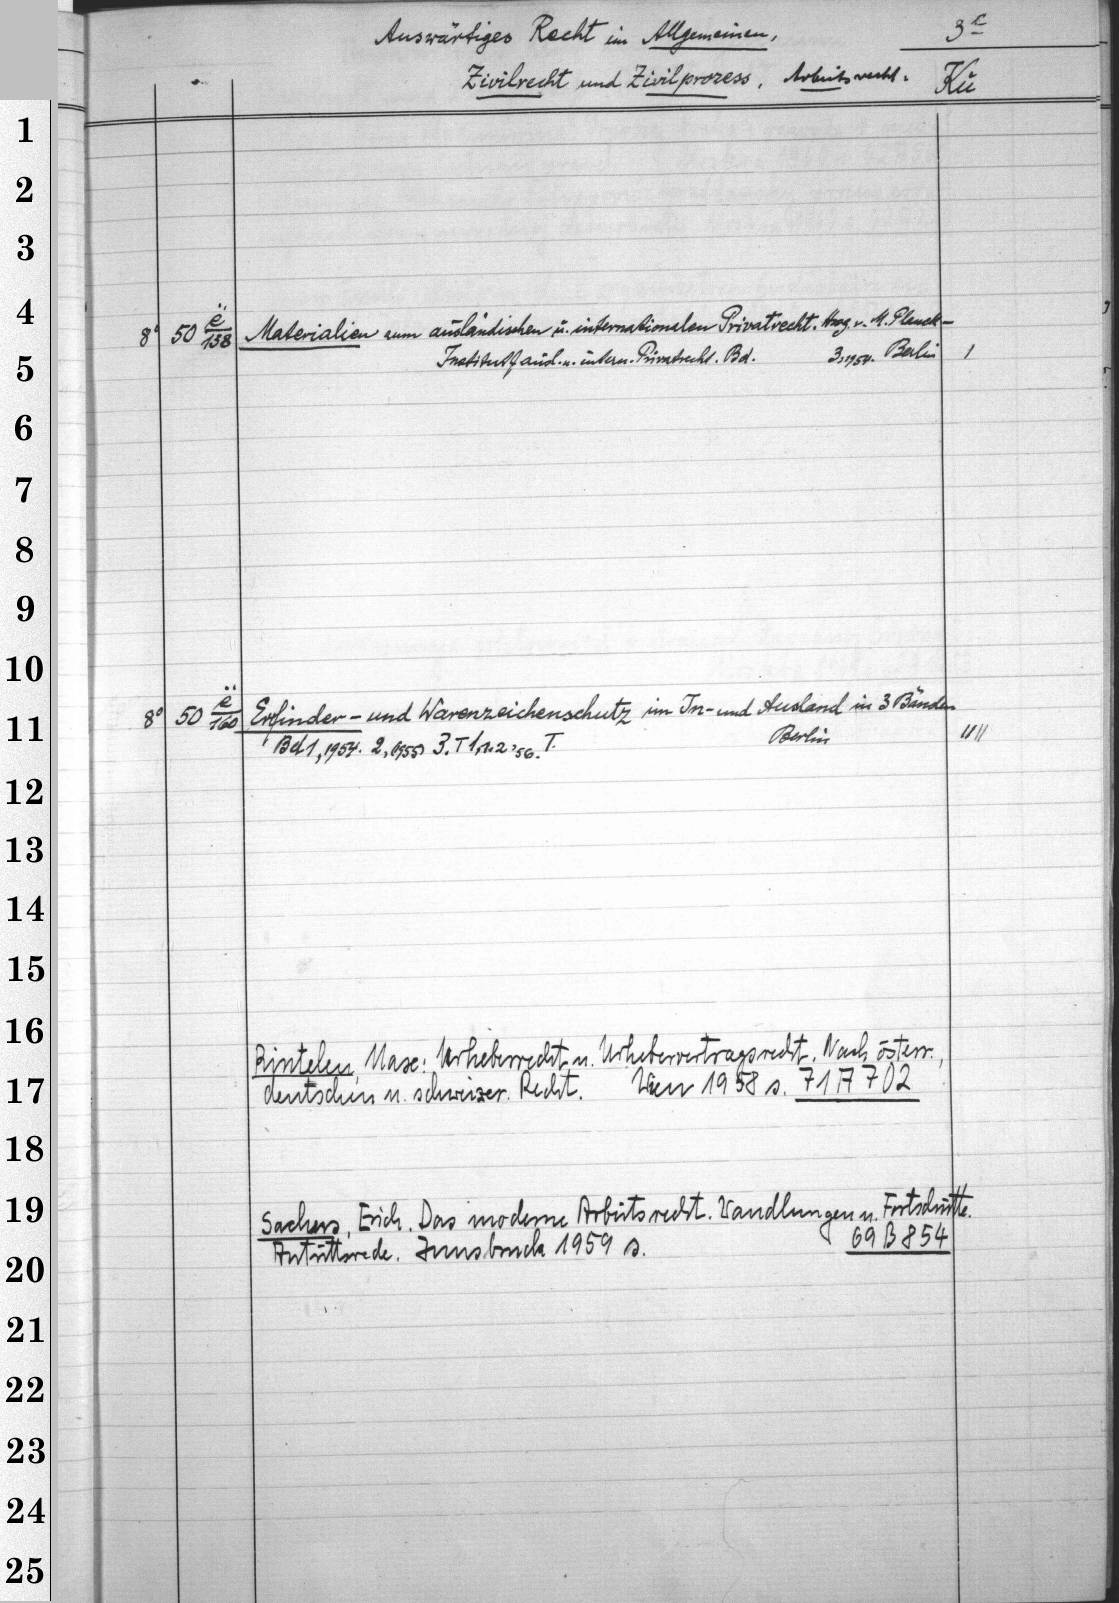 Auswärtiges Recht im Allgemeinen, 3c
Zivilrecht und Zivilprozess, Arbeitsrecht. Kü
1
2
3
4
8° 50 ë/158 Materialien zum ausländischen u. internationalen Privatrecht. Hrsg. v. M. Planck-
5
Institut f. ausl. u. intern. Privatrecht. Bd. 3, 1954. Berlin 1
6
7
8
9
10
8° 50 ë/160 Erfinder- und Warenzeichenschutz im In- und Ausland in 3 Bänden
11
Bd 1, 1954. 2, 1955 3. T 1. u. 2, 56. T. Berlin
12
13
14
15
16
Rintelen, Max: Urheberrecht u. Urhebervertragsrecht. Nach österr.,
17
deutschen u. schweizer. Recht. Wien 1958 s. 71 A 702
18
19
Sachers, Erich. Das moderne Arbeitsrecht. Wandlungen u. Fortschritte.
Antrittsrede. Innsbruck 1959 s. 69 B 854
20
21
22
23
24
25